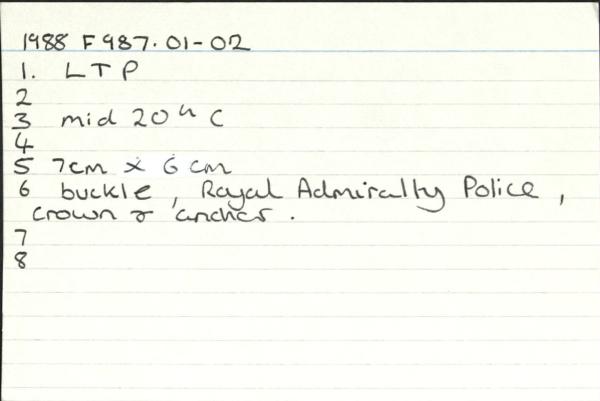 1988 F987.01-02
1. LTP
2
3 mid 20th C
4
5 7cm x 6cm
6 buckle, Royal Admiralty Police,
crown & anchor.
7
8